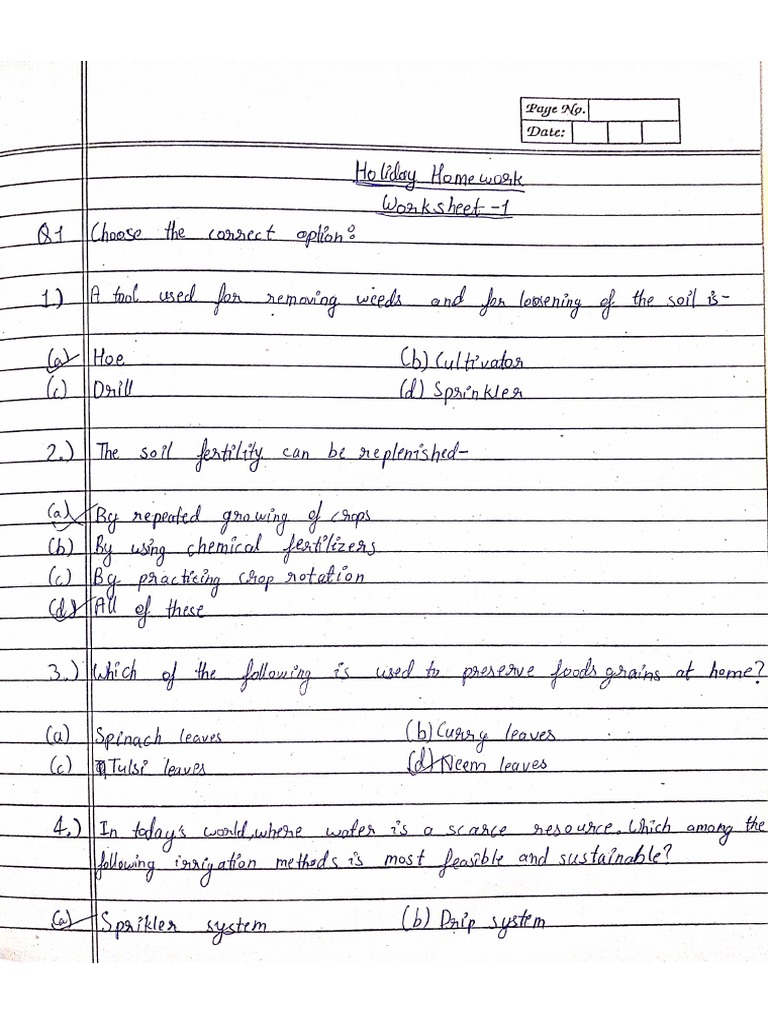 Page No.
Date:
Holiday Homework
Worksheet-1
Q1 Choose the correct option:
1.) A tool used for removing weeds and for loosening of the soil is-
(a) Hoe (b) Cultivator
(c) Drill (d) Sprinkler
2.) The soil fertility can be replenished-
(a) By repeated growing of crops
(b) By using chemical fertilizers
(c) By practicing crop rotation
(d) All of these
3.) Which of the following is used to preserve foods grains at home?
(a) Spinach leaves (b) Curry leaves
(c) Tulsi leaves (d) Neem leaves
4.) In today's world, where water is a scarce resource. Which among the
following irrigation methods is most feasible and sustainable?
(a) Sprikler system (b) Drip system